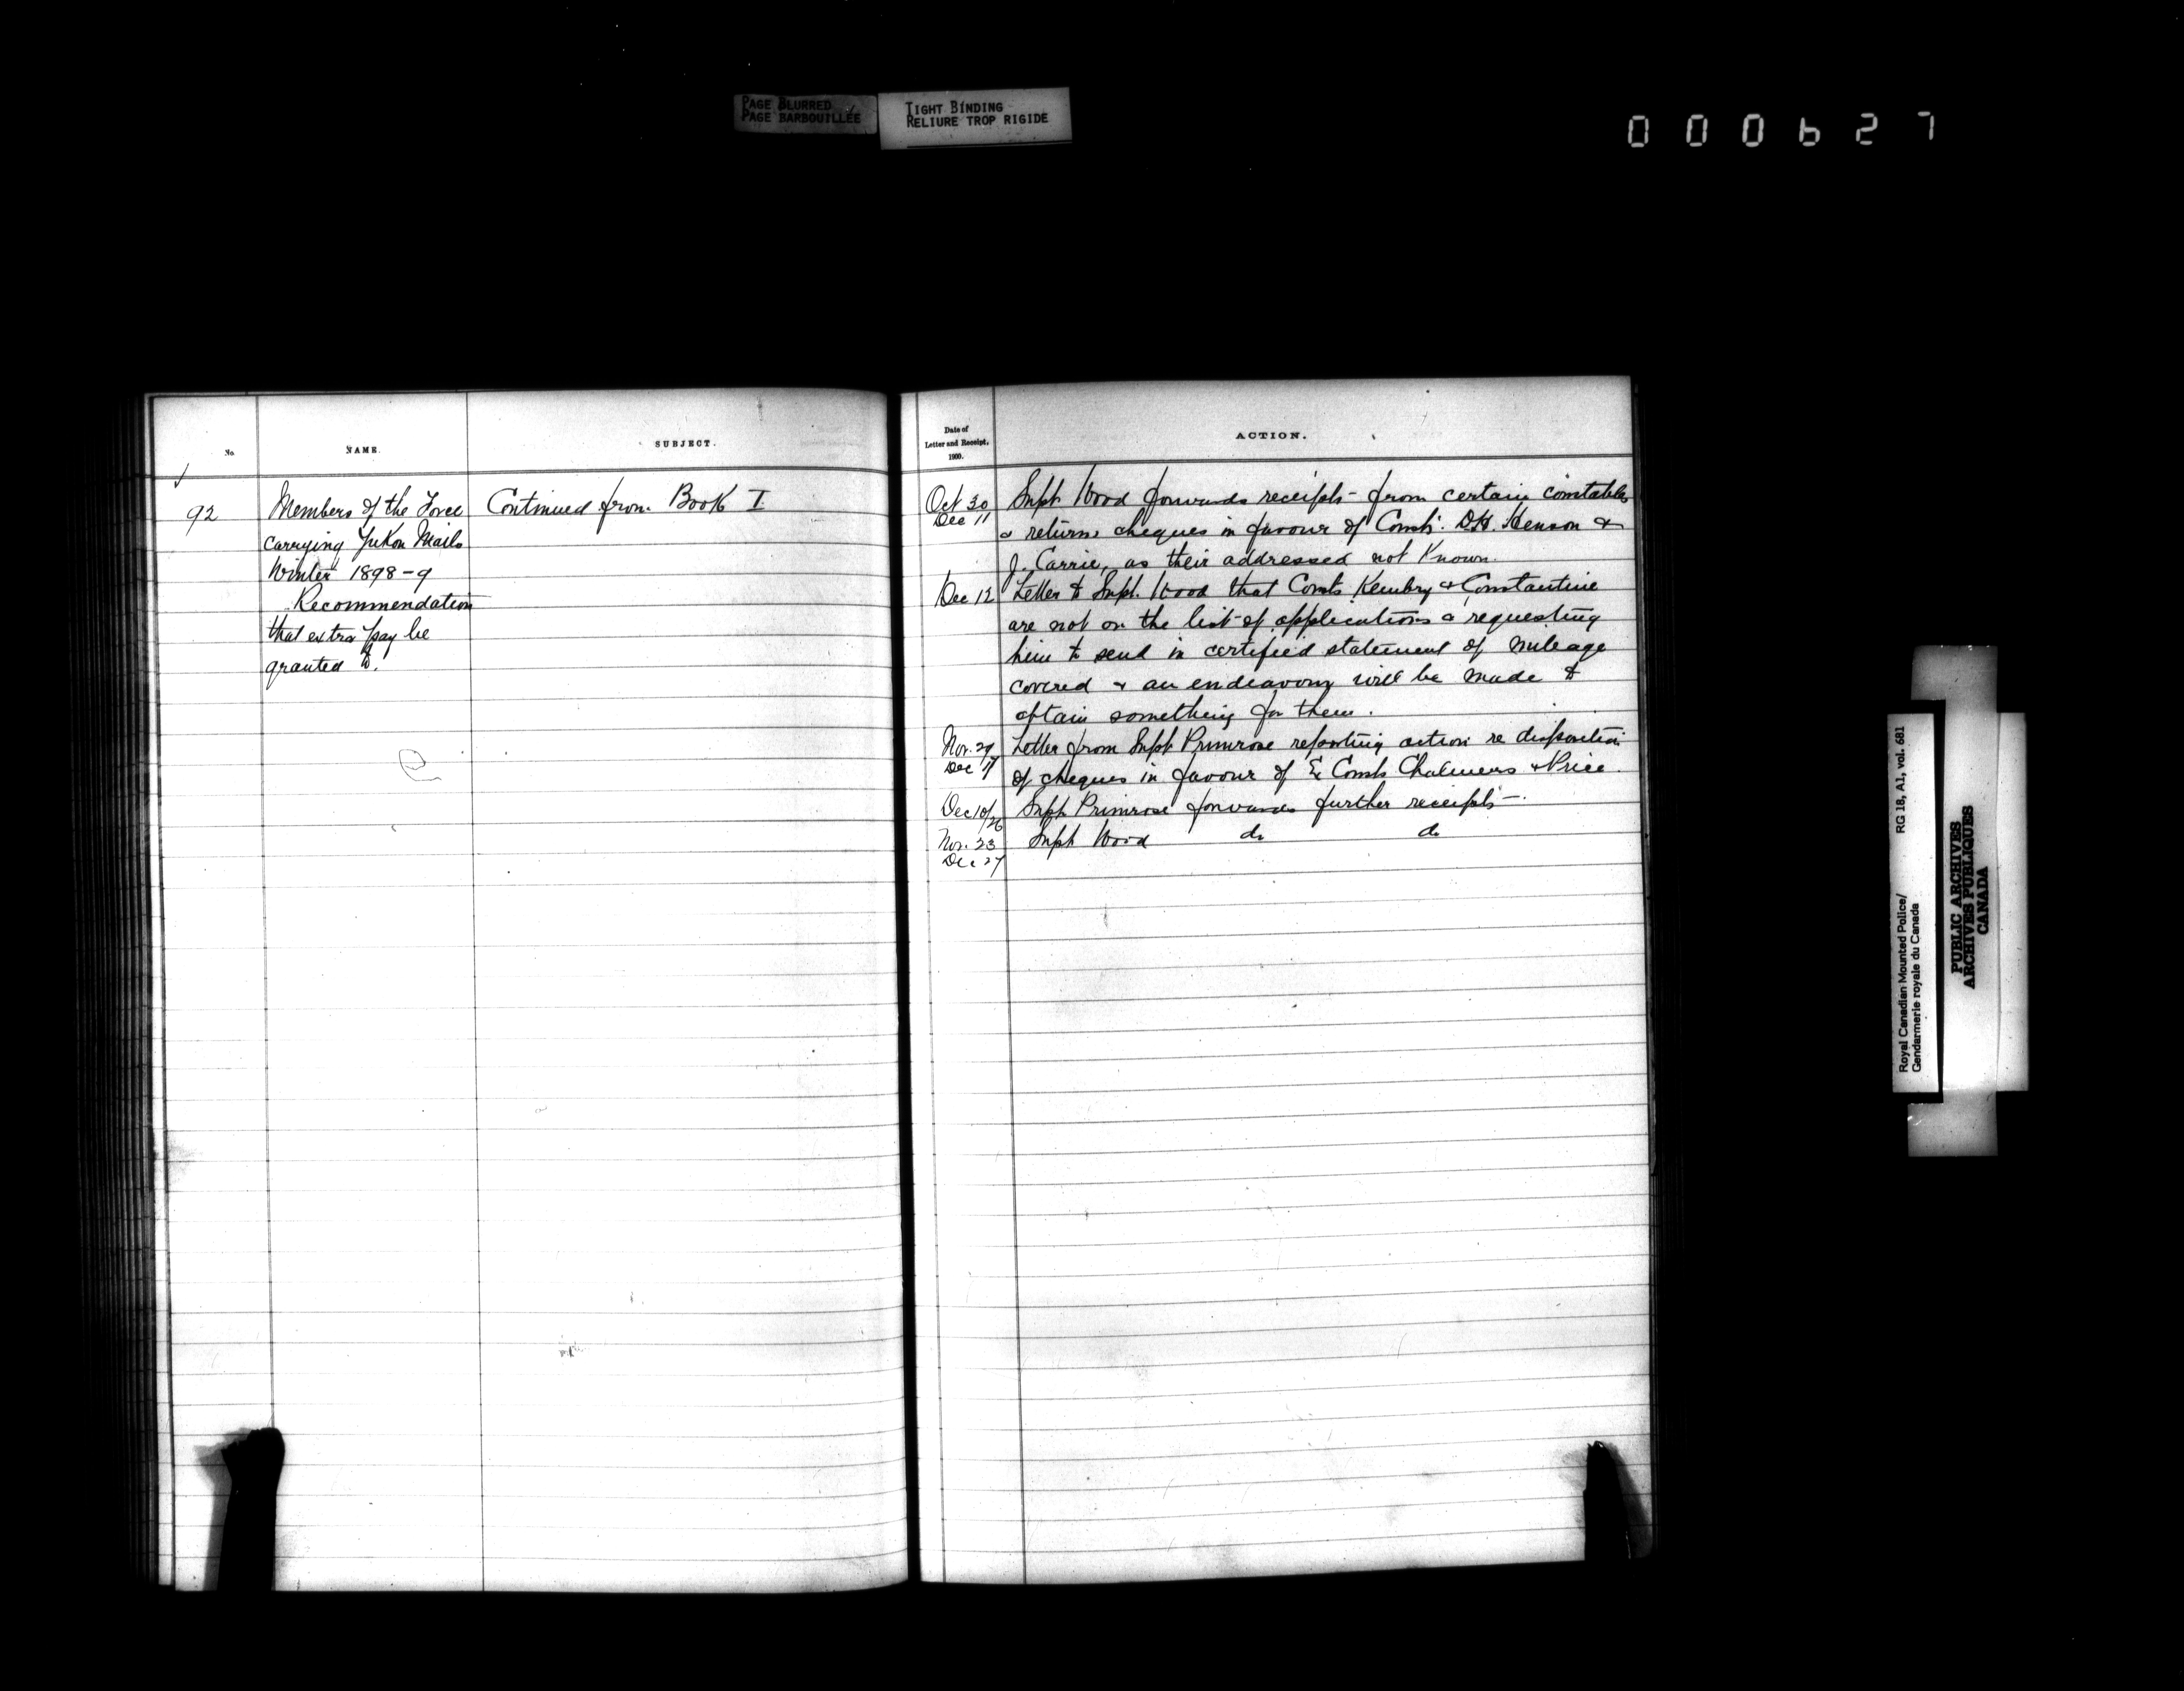 PAGE BLURRED
PAGE BARBOUILLÉE
TIGHT BINDING
RELIURE TROP RIGIDE
000627
No.
NAME.
SUBJECT.
92
Members of the Force
carrying Yukon Mails
Winter 1898-9
Recommendation
that extra pay be
granted to.
Continued from Book I
Date of
Letter and Receipt,
1900.
ACTION.
Oct 30
Dec 11
Supt Wood forwards receipts from certain constables
& returns cheques in favour of Consts. D.H. Henson &
J. Carrie, as their addressed not Known.
Dec 12
Letter to Supt. Wood that Consts Kembry & Constantine
are not on the list of applications & requesting
him to send in certified statement of mileage
covered & an endeavour will be made to
obtain something for them.
Nov. 29
Dec 17
Letter from Supt Primrose reporting action re disposition
of cheques in favour of Ex Consts Chalmers & Price.
Dec 10/26
Supt Primrose forwards further receipts.
Nov. 23
Dec 27
Supt Wood do do
Royal Canadian Mounted Police/
Gendarmerie royale du Canada
RG 18, A1, vol. 681
PUBLIC ARCHIVES
ARCHIVES PUBLIQUES
CANADA